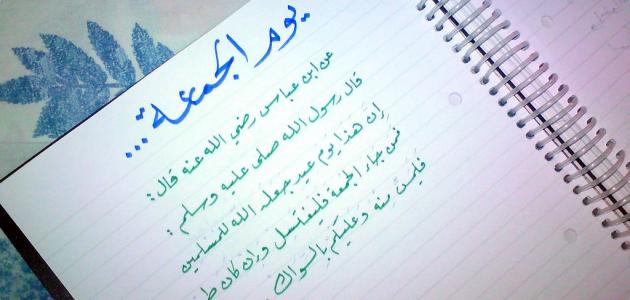 يوم الجمعة...
عن ابن عباس رضي الله عنه قال:
قال رسول الله صلى عليه وسلم:
إن هذا يوم عيد جعله الله للمسلمين
فمن جاء الجمعة فليغتسل وإن كان ط
فليمس منه وعليكم بالسواك